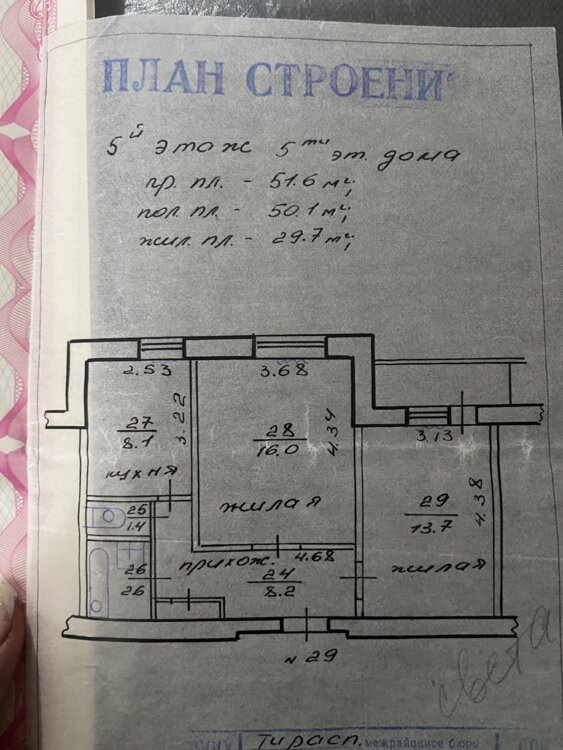 ПЛАН СТРОЕНИ
5й этаж 5ти эт. дома
гр. пл. - 51.6 м²;
пол. пл. - 50.1 м²;
жил. пл. - 29.7 м²;
2.53
3.68
27
8.1
3.22
28
16.0
4.34
3.13
кухня
жилая
29
13.7
4.38
25
1.4
прихож.
4.68
жилая
26
26
24
8.2
N 29
света
Тирасп. межрайонное бюро